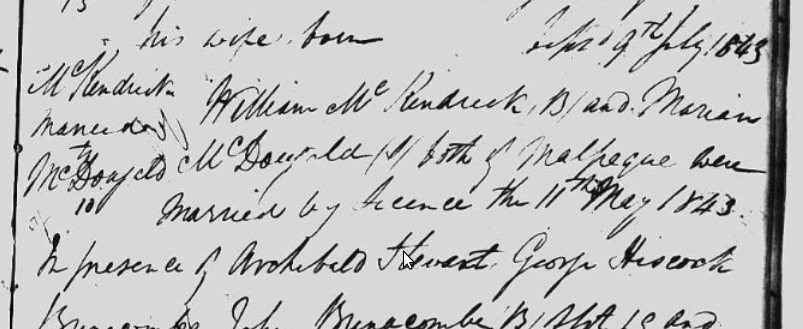 his wife born bapt'd 9th July 1843
McKendrick William McKendrick (B) and Marian
married
McDougald McDougald (S) both of Malpeque were
10 Married by licence the 11th May 1843.
In presence of Archibald Stewart. George Hiscock